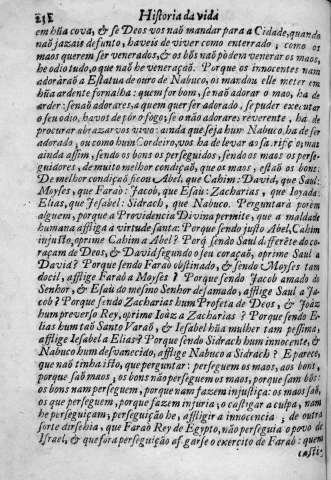 Historia da vida
em hũa cova, & se Deos vos naõ mandar para a Cidade, quando
naõ jazais defunto, haveis de viver como enterrado; como os
maos querem ser venerados, & os bõs naõ pòdem venerar os maos,
he odio tudo, o que naõ he veneraçaõ. Porque os innocentes nam
adoráraõ a Estatua de ouro de Nabuco, os mandou elle meter em
hũa ardente fornalha: quem for bom, se naõ adorar o mao, ha de
arder: se naõ adorares, a quem quer ser adorado, se puder executar
o seu odio, haveis de pòr o fogo; se o não adorares reverente, ha de
procurar abrazarvos vivo: ainda que seja hum Nabuco, ha de ser
adorado, ou como hum Cordeiro, vos ha de levar ao sacrificio; mas
ainda assim, sendo os bons os perseguidos, sendo os maos os perse-
guidores, de muito melhor condiçaõ, que os maos, estaõ os bons:
De melhor condiçaõ ficou Abel, que Cahim: David, que Saul:
Moyses, que Faraò: Jacob, que Esaù: Zacharias, que Ioráda:
Elias, que Jesabel: Sidrach, que Nabuco. Perguntarà porèm
alguem, porque a Providencia Divina permite, que a maldade
humana afflija a virtude santa: Porque sendo justo Abel, Cahim
injusto, oprime Cahim a Abel? Porq̃ sendo Saul differẽte do co-
raçam de Deos, & David segundo o seu coraçaõ, oprime Saul a
David? Porque sendo Faraò obstinado, & sendo Moyses tam
docil, afflige Faraò a Moyses? Porque sendo Jacob amado do
Senhor, & Esaù do mesmo Senhor desamado, afflige Saul a Ja-
cob? Porque sendo Zacharias hum Profeta de Deos, & Ioàz
hum preverso Rey, oprime Ioàz a Zacharias? Porque sendo E-
lias hum taõ Santo Varaõ, & Iesabel hũa mulher tam pessima,
afflige Iesabel a Elias? Porque sendo Sidrach hum innocente, &
Nabuco hum desvanecido, afflige Nabuco a Sidrach? E parece,
que naõ tinha isto, que perguntar: perseguem os maos, aos bons,
porque saõ maos; os bons não perseguem os maos, porque sam bõs:
os bons nam perseguem, porque nam fazem injustiça: os maos saõ,
os que perseguem, porque fazem injuria; o castigar a culpa, nam
he perseguiçam; perseguiçaõ he, affligir a innocencia; de outra
sorte dirsehia, que Faraò Rey de Egypto, naõ perseguia o povo de
Israel, & que fora perseguiçaõ affogarse o exercito de Faraò: quem
casti-